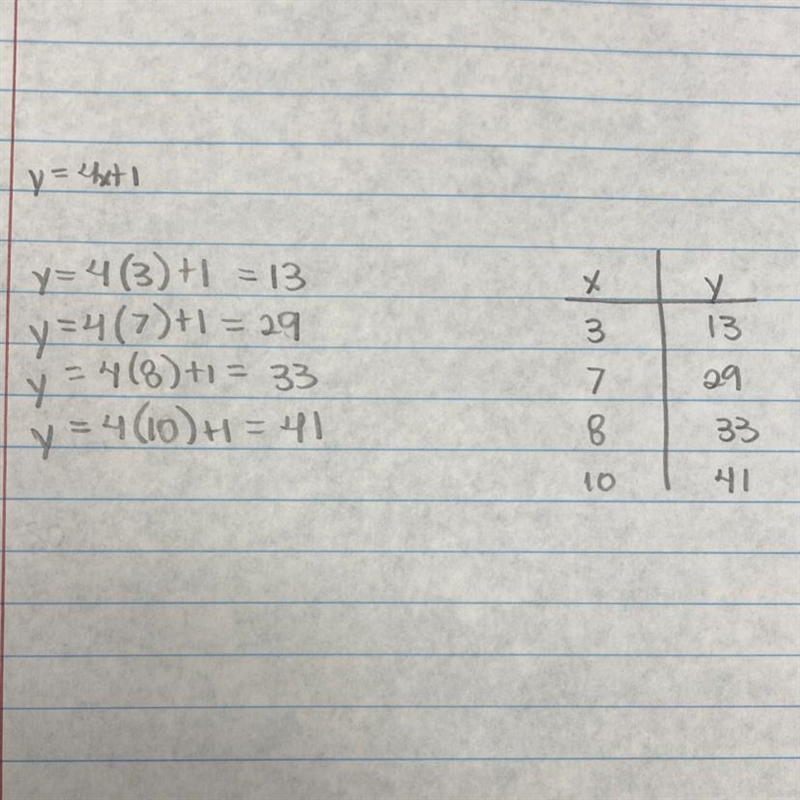 y = 4x+1
y = 4(3)+1 = 13
y = 4(7)+1 = 29
y = 4(8)+1 = 33
y = 4(10)+1 = 41
x y
3 13
7 29
8 33
10 41